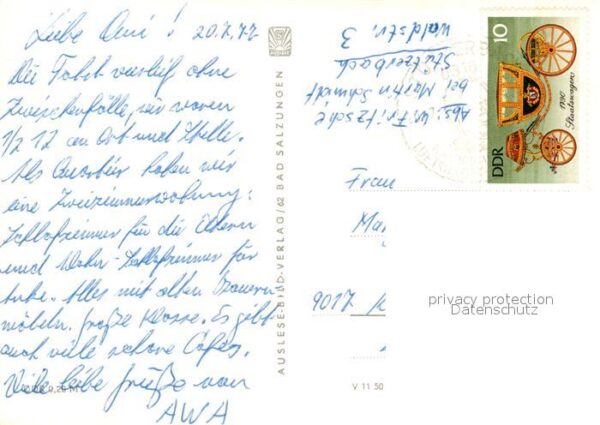 Liebe Omi! 20.7.77
Die Fahrt verlief ohne
Zwischenfälle, wir waren
1/2 12 an Ort und Stelle.
Als Quartier haben wir
eine Zweizimmerwohnung:
Schlafzimmer für die Eltern
und Wohn-Schlafzimmer für
Alles mit alten Bauern
möbeln. Große Klasse. Es gibt
auch viele schöne Cafes.
Viele liebe Grüße von
AWA
AUSLESE-BILD-VERLAG/62 BAD SALZUNGEN
Abs: W. Fritzsche
bei Martin Schmidt
Stützerbach
Waldstr. 3
10
1790
Staatswagen
DDR
Frau
9017
privacy protection
Datenschutz
V 11 50